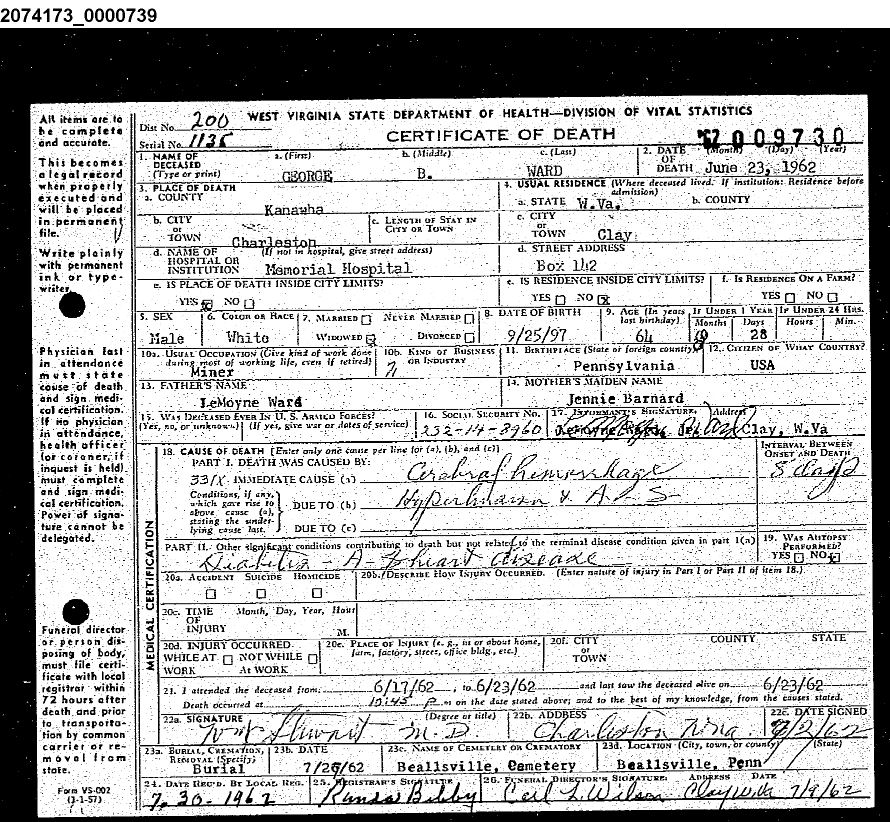 2074173_0000739
WEST VIRGINIA STATE DEPARTMENT OF HEALTH—DIVISION OF VITAL STATISTICS
CERTIFICATE OF DEATH
Dist No. 200
Serial No. 1135
009730
All items are to be complete and accurate.
This becomes a legal record when properly executed and will be placed in permanent file.
Write plainly with permanent ink or typewriter.
Physician last in attendance must state cause of death and sign medical certification. If no physician in attendance, health officer (or coroner, if inquest is held) must complete and sign medical certification. Power of signature cannot be delegated.
Funeral director or person disposing of body, must file certificate with local registrar within 72 hours after death and prior to transportation by common carrier or removal from state.
Form VS-002
(3-1-57)
1. NAME OF DECEASED (Type or print) a. (First) GEORGE b. (Middle) B. c. (Last) WARD
2. DATE OF DEATH (Month) (Day) (Year) June 23, 1962
3. PLACE OF DEATH
a. COUNTY Kanawha
b. CITY or TOWN Charleston
c. LENGTH OF STAY IN CITY OR TOWN
d. NAME OF HOSPITAL OR INSTITUTION (If not in hospital, give street address) Memorial Hospital
e. IS PLACE OF DEATH INSIDE CITY LIMITS? YES NO
4. USUAL RESIDENCE (Where deceased lived. If institution: Residence before admission)
a. STATE W.Va. b. COUNTY
c. CITY or TOWN Clay
d. STREET ADDRESS Box 142
e. IS RESIDENCE INSIDE CITY LIMITS? YES NO
f. IS RESIDENCE ON A FARM? YES NO
5. SEX Male
6. COLOR OR RACE White
7. MARRIED NEVER MARRIED WIDOWED DIVORCED
8. DATE OF BIRTH 9/25/97
9. AGE (In years last birthday) 64 IF UNDER 1 YEAR Months Days 28 IF UNDER 24 HRS. Hours Min.
10a. USUAL OCCUPATION (Give kind of work done during most of working life, even if retired) Miner
10b. KIND OF BUSINESS OR INDUSTRY
11. BIRTHPLACE (State or foreign country) Pennsylvania
12. CITIZEN OF WHAT COUNTRY? USA
13. FATHER'S NAME LeMoyne Ward
14. MOTHER'S MAIDEN NAME Jennie Barnard
15. WAS DECEASED EVER IN U. S. ARMED FORCES? (Yes, no, or unknown) (If yes, give war or dates of service)
16. SOCIAL SECURITY NO. 232-14-8960
17. INFORMANT'S SIGNATURE Address Clay, W.Va
MEDICAL CERTIFICATION
18. CAUSE OF DEATH (Enter only one cause per line for (a), (b), and (c))
PART I. DEATH WAS CAUSED BY:
331X IMMEDIATE CAUSE (a) Cerebral hemorrhage
INTERVAL BETWEEN ONSET AND DEATH 8 days
Conditions, if any, which gave rise to above cause (a), stating the underlying cause last.
DUE TO (b)
DUE TO (c)
PART II. Other significant conditions contributing to death but not related to the terminal disease condition given in part I(a)
Diabetes - A-S heart disease
19. WAS AUTOPSY PERFORMED? YES NO
20a. ACCIDENT SUICIDE HOMICIDE
20b. DESCRIBE HOW INJURY OCCURRED. (Enter nature of injury in Part I or Part II of item 18.)
20c. TIME OF INJURY Month, Day, Year, Hour M.
20d. INJURY OCCURRED WHILE AT WORK NOT WHILE AT WORK
20e. PLACE OF INJURY (e. g., in or about home, farm, factory, street, office bldg., etc.)
20f. CITY or TOWN COUNTY STATE
21. I attended the deceased from 6/17/62, to 6/23/62 and last saw the deceased alive on 6/23/62
Death occurred at 12:45 P m on the date stated above; and to the best of my knowledge, from the causes stated.
22a. SIGNATURE (Degree or title) Wm Stewart M.D.
22b. ADDRESS Charleston
22c. DATE SIGNED
23a. BURIAL, CREMATION, REMOVAL (Specify) Burial
23b. DATE 7/26/62
23c. NAME OF CEMETERY OR CREMATORY Beallsville, Cemetery
23d. LOCATION (City, town, or county) (State) Beallsville, Penn
24. DATE REC'D. BY LOCAL REG. 7-30-1962
25. REGISTRAR'S SIGNATURE
26. FUNERAL DIRECTOR'S SIGNATURE Carl L. Wilson ADDRESS DATE 7/9/62